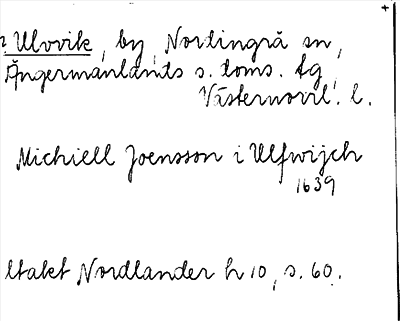 Ulvvik, by, Nordingrå sn,
Ångermanlands s. doms. tg,
Västernorrl. l.
Michiell Joensson i Ulfwijch
1639
ltakt Nordlander h 10, s. 60.